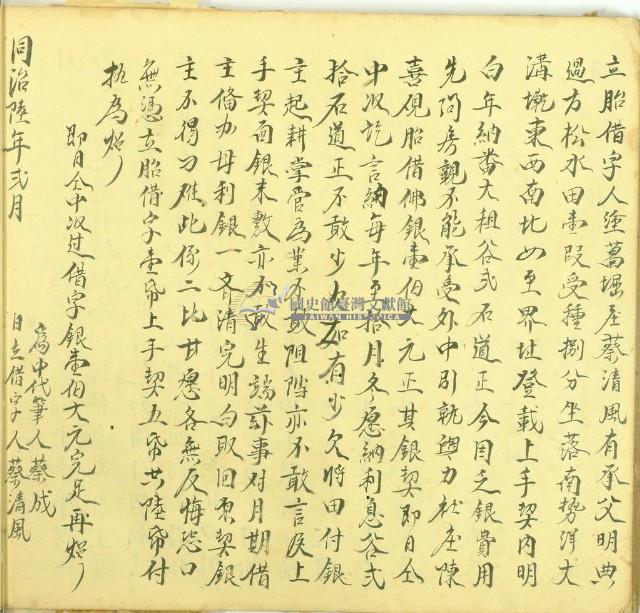 立胎借字人塗葛堀庄蔡清風有承父明典
過方松水田壹段受種捌分坐落南勢洋大
溝墘東西南北四至界址登載上手契內明
白年納番大租谷弍石道正今因乏銀費用
先問房親不能承受外中引就與力社庄陳
喜硯胎借佛銀壹伯大元正其銀契即日仝
中收訖言納每年至拾月冬愿納利息谷弍
拾石道正不敢少欠如有少欠將田付銀
主起耕掌管為業不敢阻隔亦不敢言及上
手契面銀未敷亦不敢生端茲事对月期借
主俻办母利銀一齐清完明白取回原契銀
主不得刁难此係二比甘愿各無反悔恐口
無憑立胎借字壹帋上手契五帋共陸帋付
执為炤
即日仝中收过借字銀壹伯大元完足再炤
為中代筆人蔡成
同治陸年弍月 日立借字人蔡清風
國史館臺灣文獻館
TAIWAN HISTORICA